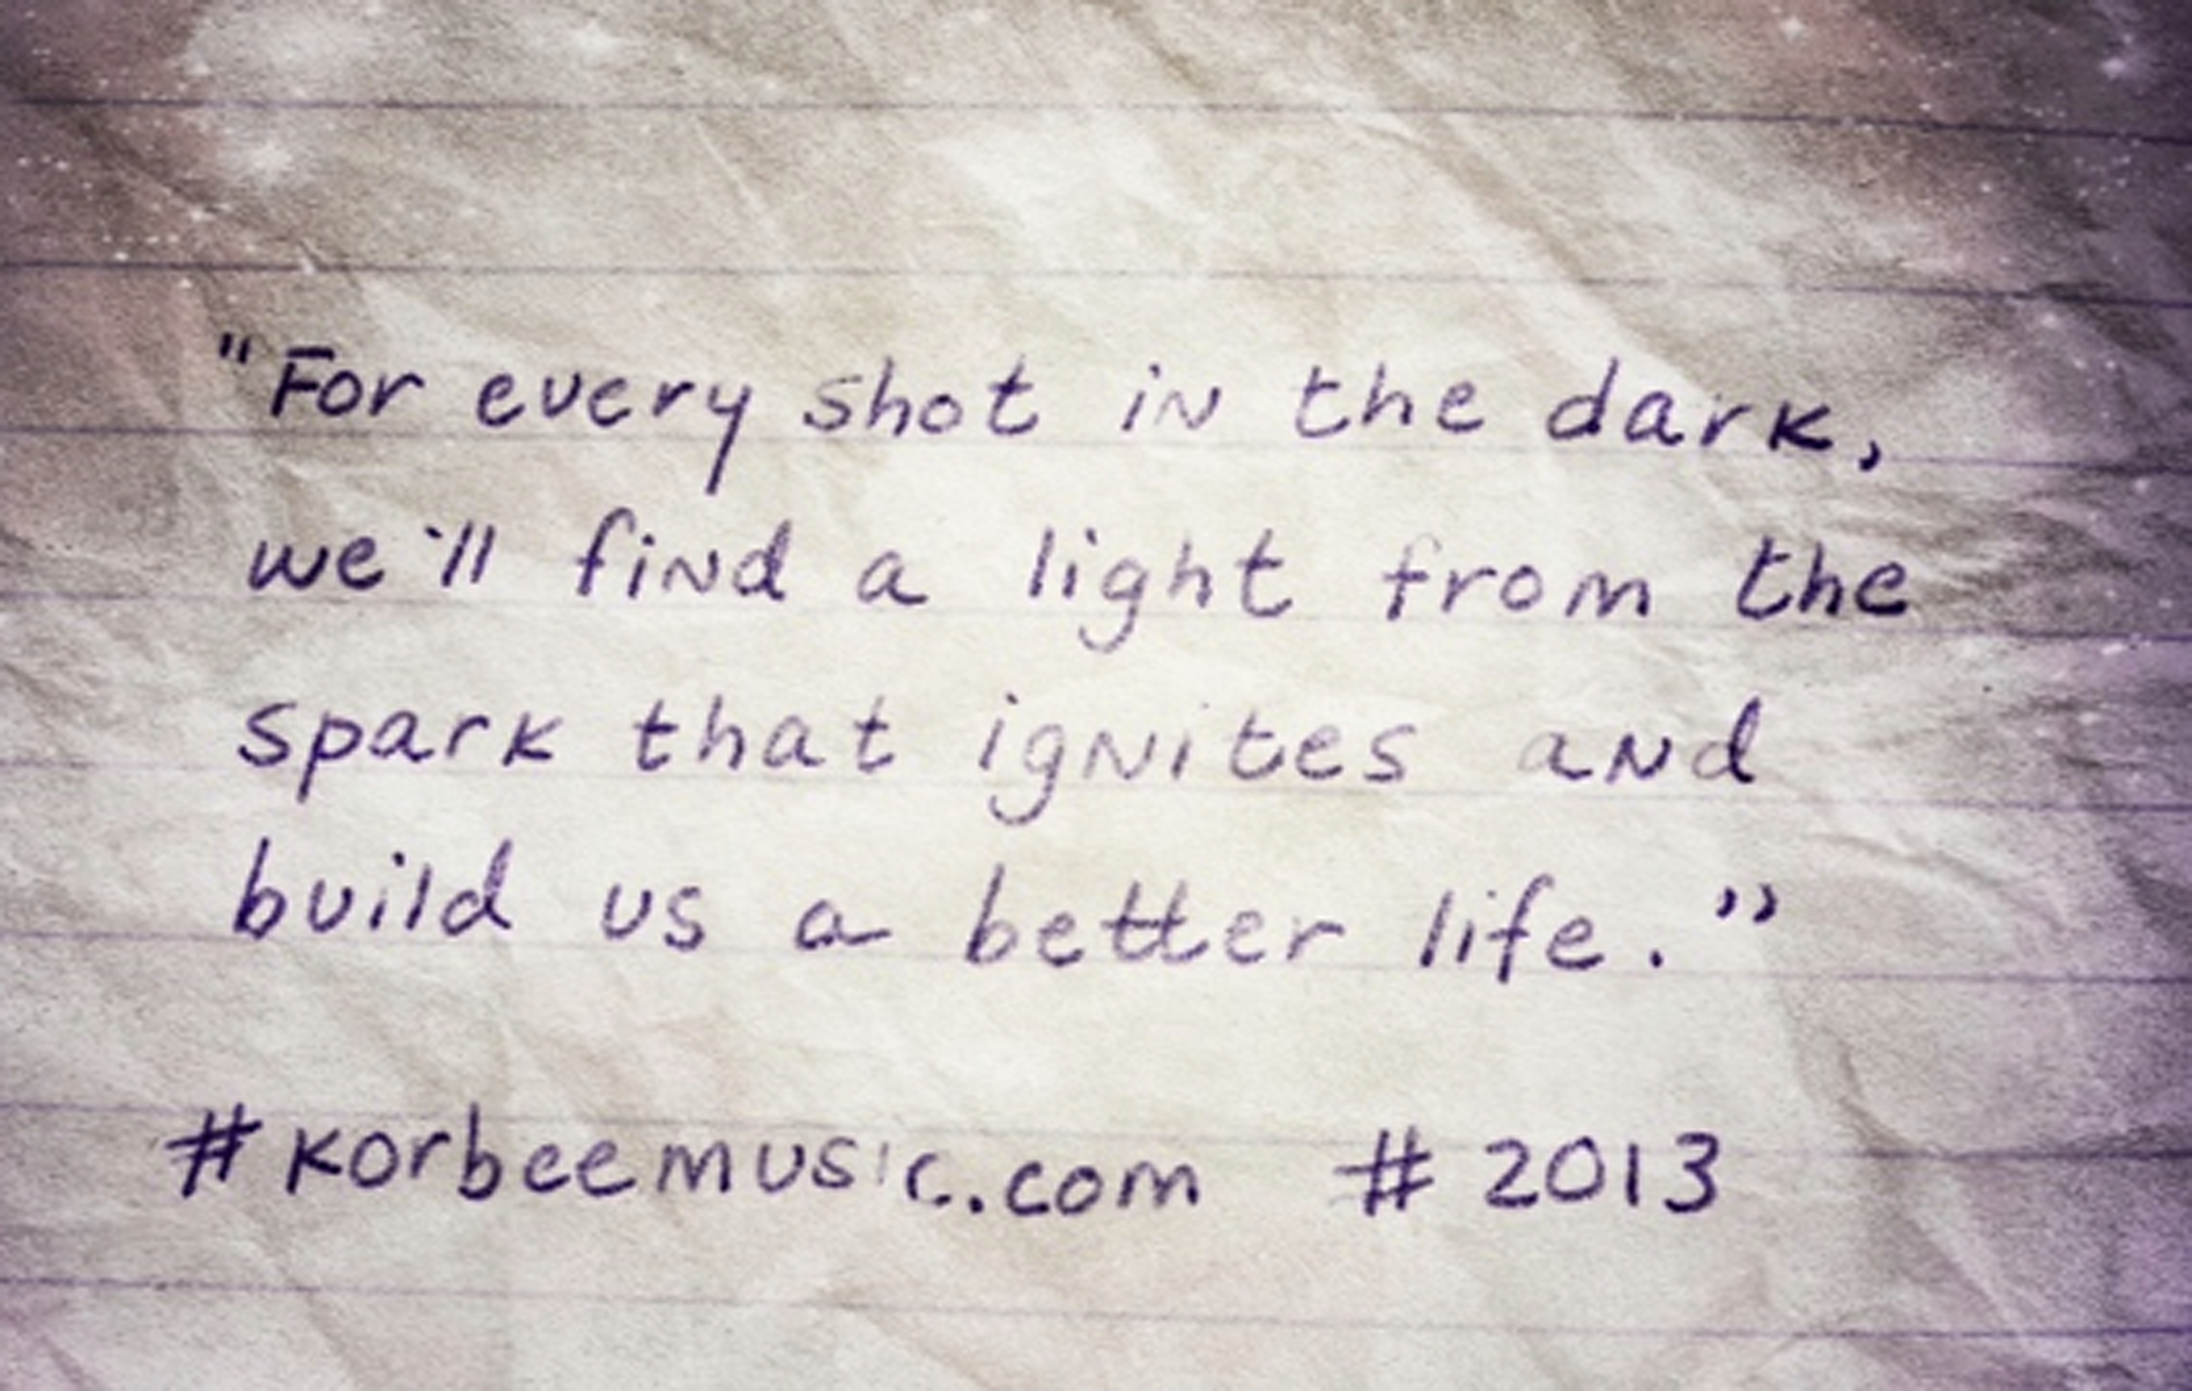 "For every shot in the dark,
we'll find a light from the
spark that ignites and
build us a better life."
#korbeemusic.com #2013